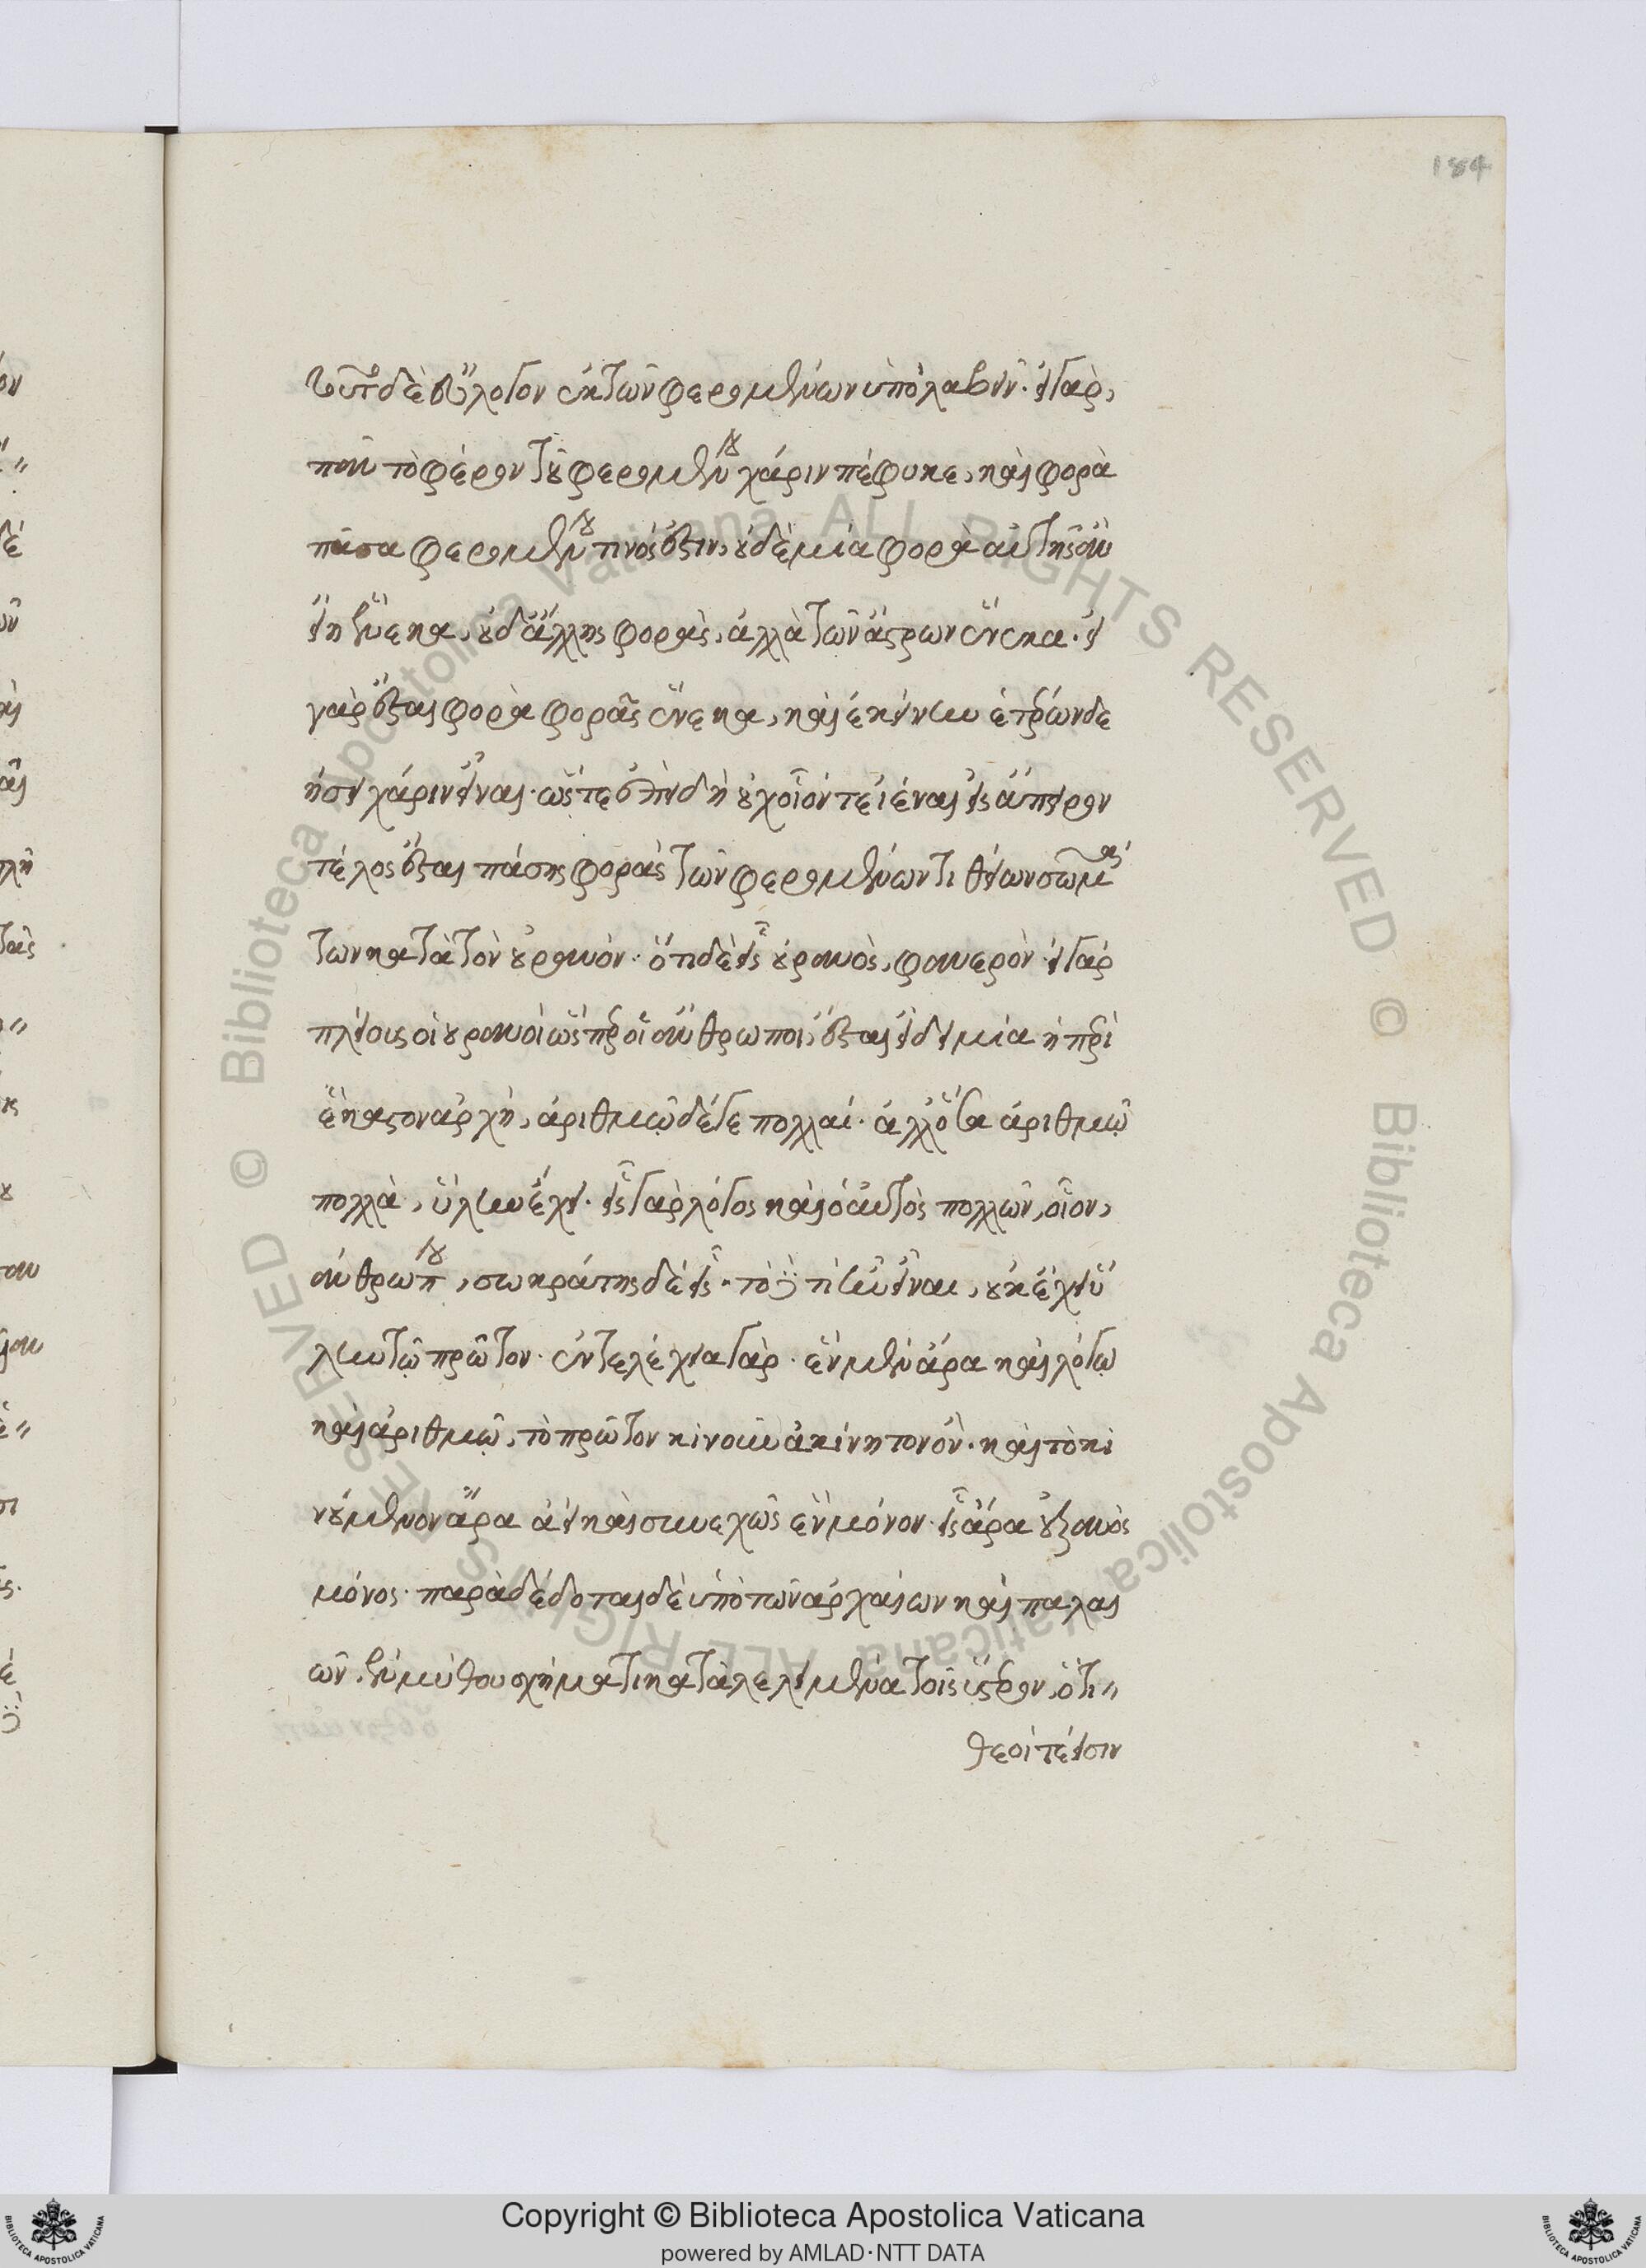 184
τοῦτο δὲ εὔλογον ἐκ τῶν φερομένων ὑπολαβεῖν. εἰ γὰρ,
πᾶν τὸ φέρον τοῦ φερομένου χάριν πέφυκε, καὶ φορὰ
πᾶσα φερομένου τινός ἐστιν, οὐδὲ μία φορὰ αὐτῆς ἂν
εἴη ἕνεκα, οὐδ' ἄλλης φορᾶς, ἀλλὰ τῶν ἄστρων ἕνεκα. εἰ
γὰρ ἔσται φορὰ φορᾶς ἕνεκα, καὶ ἐκείνην ἑτέρων δε
ήσει χάριν εἶναι. ὥστε ἐπειδὴ οὐχ οἷόν τε ἰέναι εἰς ἄπειρον
τέλος ἔσται πάσης φορᾶς τῶν φερομένων τι θείων σωμά
των κατὰ τὸν οὐρανόν. ὅτι δὲ εἷς οὐρανὸς, φανερόν. εἰ γάρ
πλείους οἱ οὐρανοὶ ὥσπερ οἱ ἄνθρωποι, ἔσται εἴδει μία ἡ περὶ
ἕκαστον ἀρχὴ, ἀριθμῷ δέ γε πολλαί. ἀλλ' ὅσα ἀριθμῷ
πολλὰ, ὕλην ἔχει. εἷς γὰρ λόγος καὶ ὁ αὐτὸς πολλῶν, οἷον,
ἀνθρώπου, σωκράτης δὲ εἷς. τὸ δὲ τί ἦν εἶναι, οὐκ ἔχει ὕ
λην τῷ πρῶτον. ἐντελέχεια γάρ. ἓν μὲν ἄρα καὶ λόγῳ
καὶ ἀριθμῷ, τὸ πρῶτον κινοῦν ἀκίνητον ὄν. καὶ τὸ κι
νούμενον ἄρα ἀεὶ καὶ συνεχῶς ἓν μόνον. εἷς ἄρα οὐρανὸς
μόνος. παραδέδοται δὲ ὑπὸ τῶν ἀρχαίων καὶ παλαι
ῶν, ἐν μύθου σχήματι καταλελειμμένα τοῖς ὕστερον, ὅτι
θεοί τέ εἰσιν